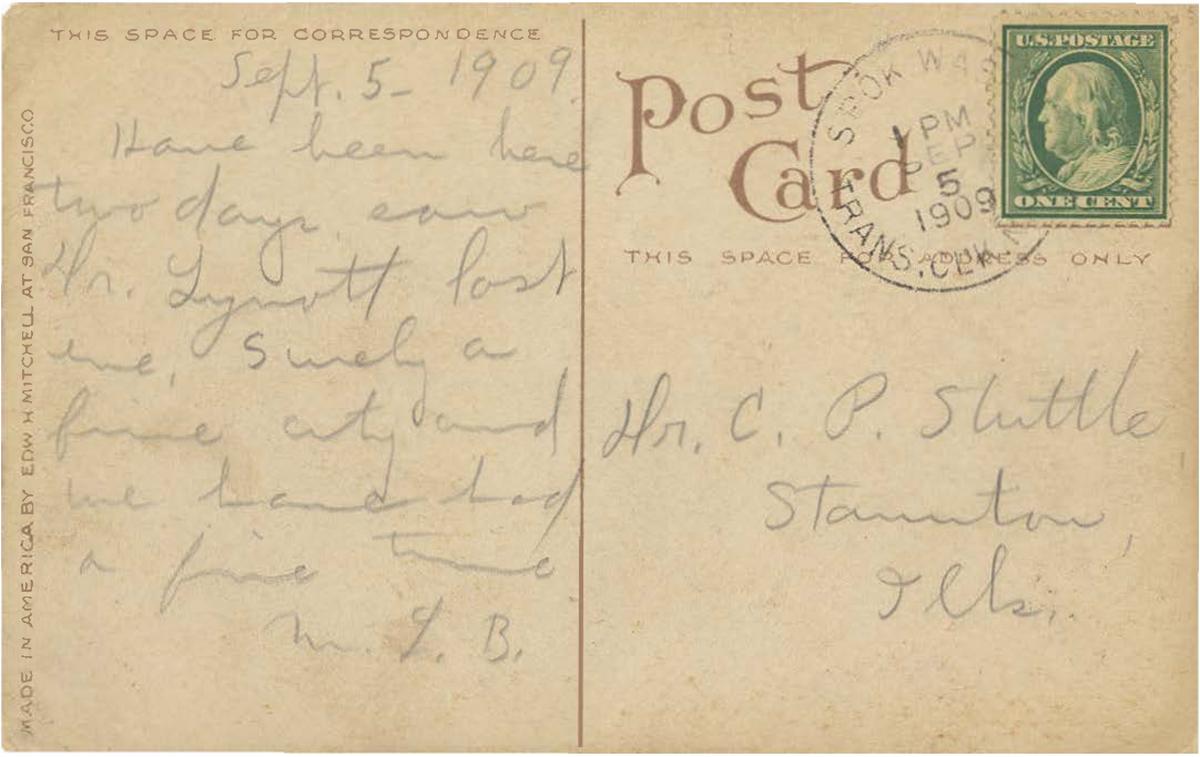 THIS SPACE FOR CORRESPONDENCE
Sept. 5 - 1909.
Have been here
two days. saw
Dr. Lynott last
eve. Surely a
fine city and
we have had
a fine time
M. L. B.
MADE IN AMERICA BY EDW H MITCHELL AT SAN FRANCISCO
Post
Card
THIS SPACE FOR ADDRESS ONLY
SPOK WAS
1 PM
SEP
5
1909
TRANS. CLK.
U.S. POSTAGE
ONE CENT
Dr. C. P. Stuttle
Staunton,
Ills.